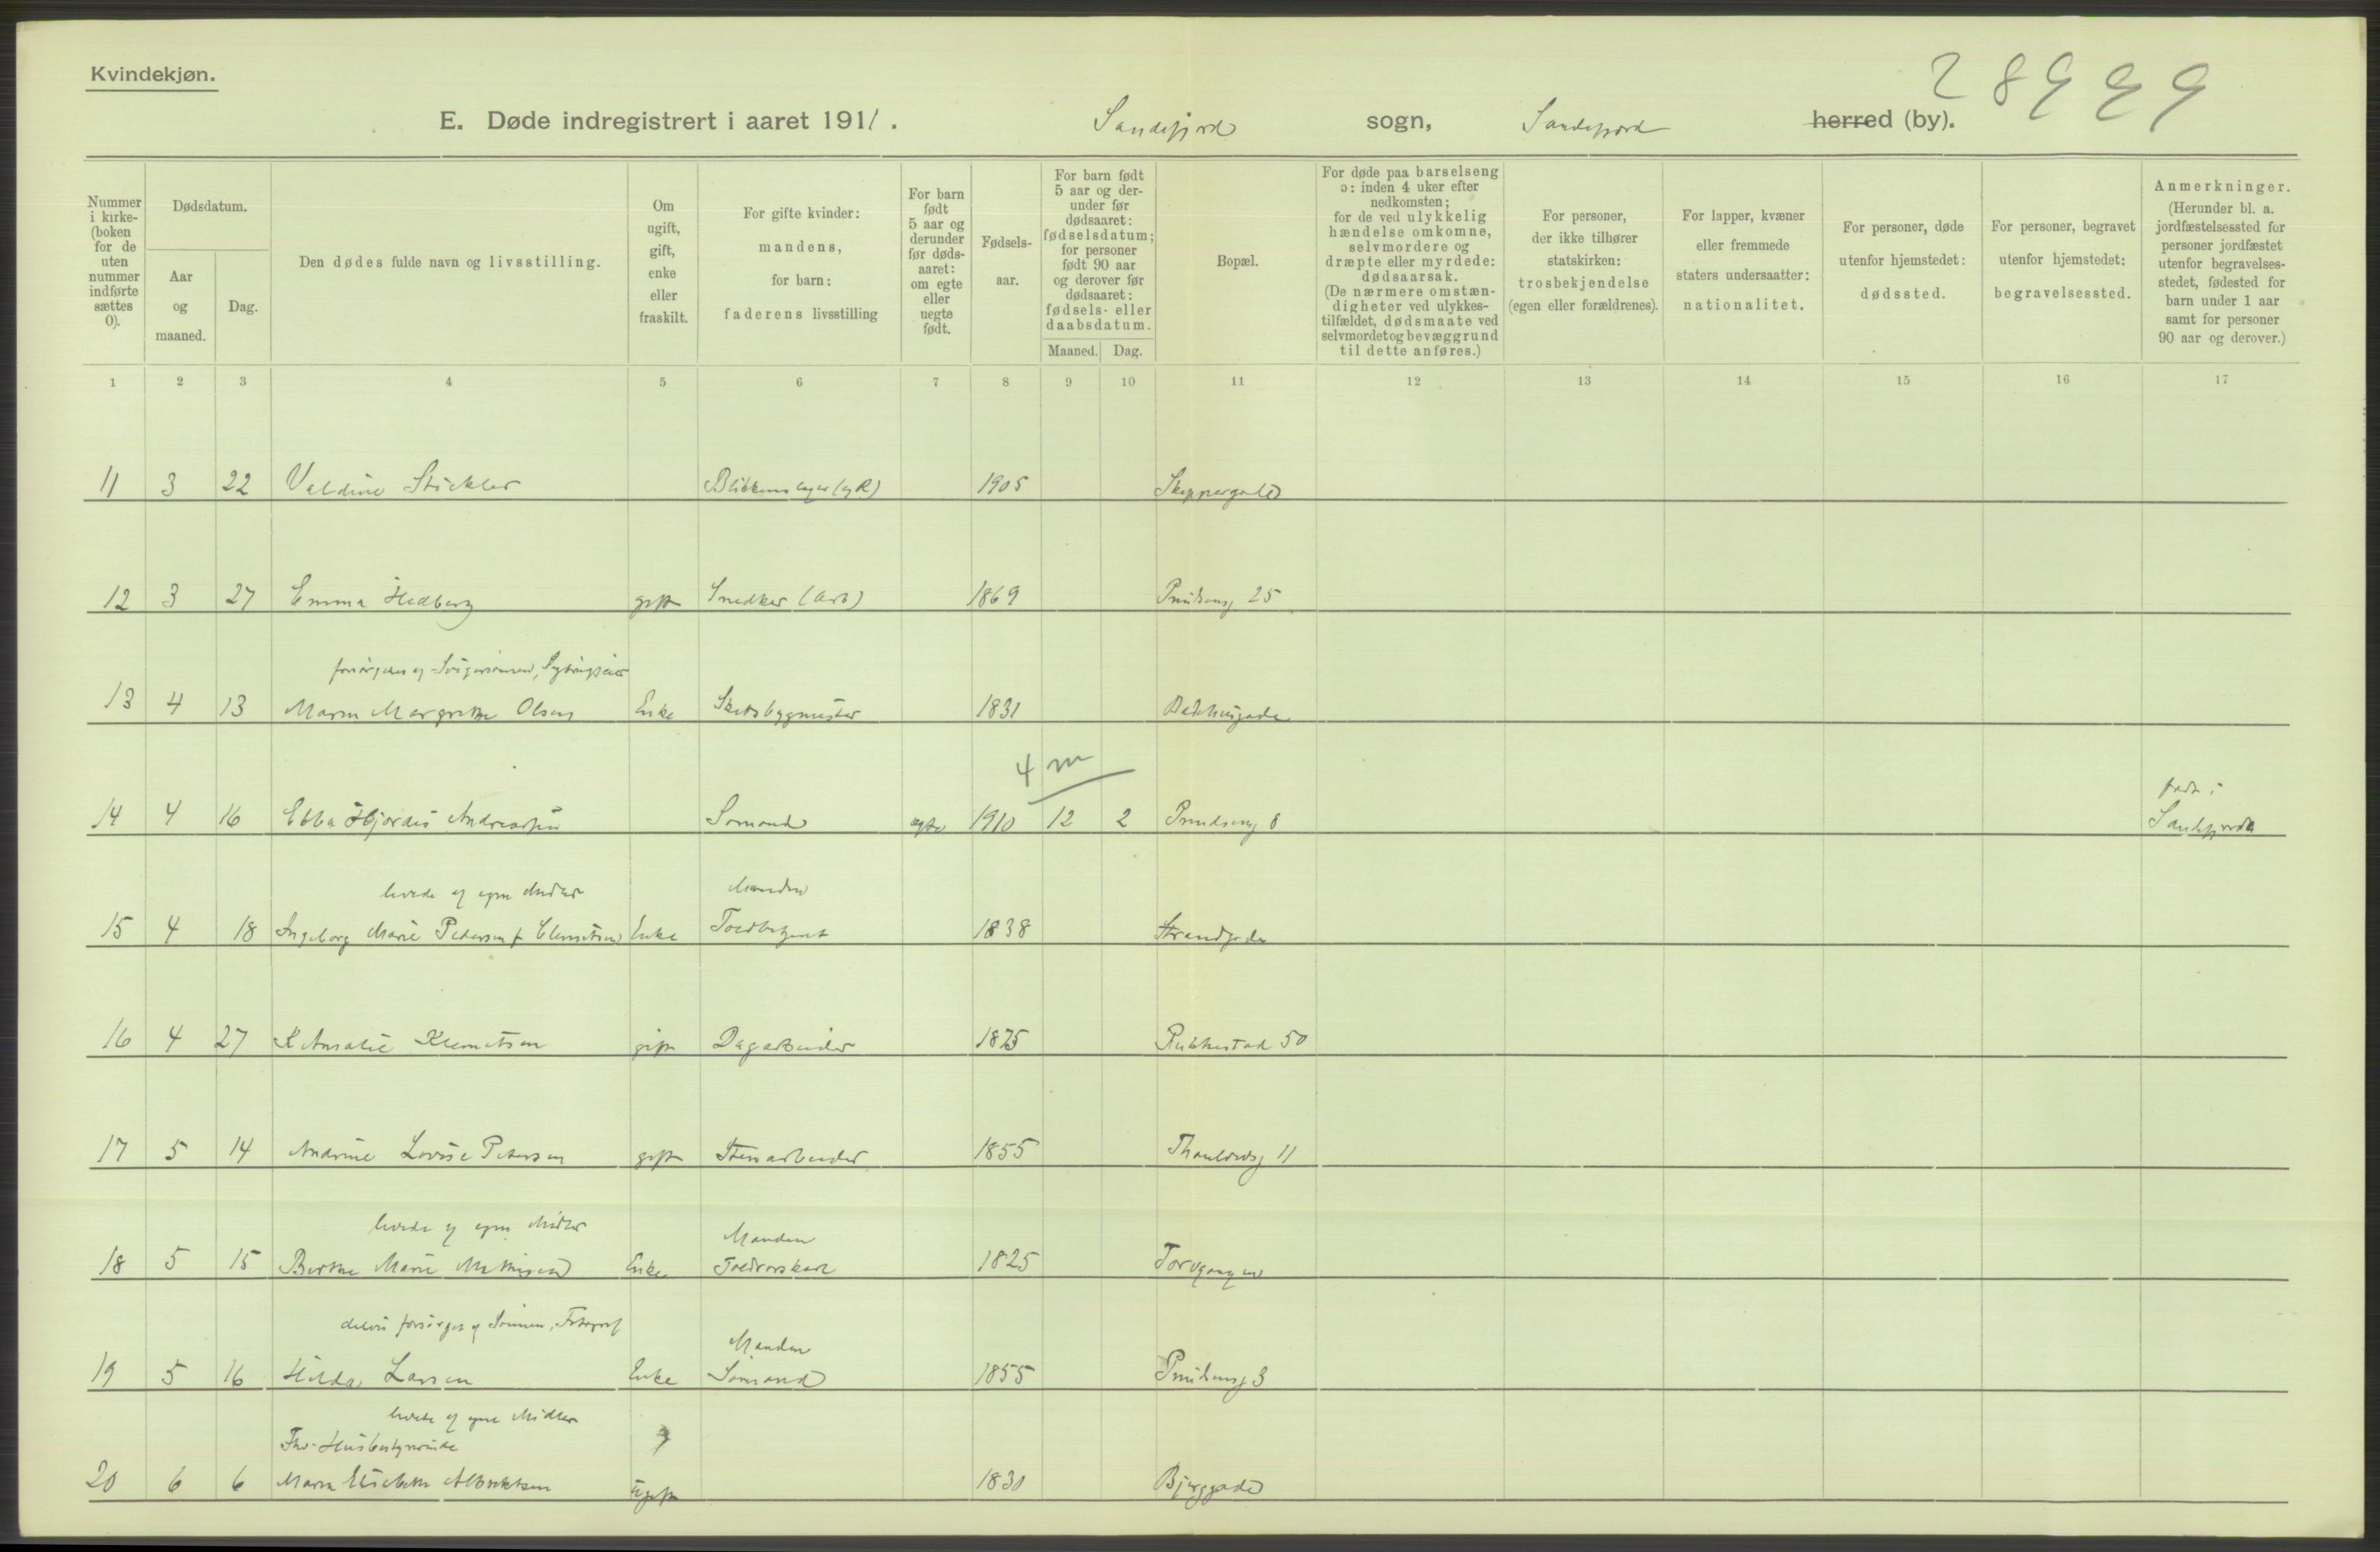 Kvindekjøn.
28999
E. Døde indregistrert i aaret 1911. Sandefjord sogn, Sandefjord herred (by).
Nummer i kirke-(boken for de uten nummer indførte sættes 0).
Dødsdatum.
Aar og maaned.
Dag.
Den dødes fulde navn og livsstilling.
Om ugift, gift, enke eller fraskilt.
For gifte kvinder: mandens, for barn: faderens livsstilling
For barn født 5 aar og derunder før døds-aaret: om egte eller uegte født.
Fødsels-aar.
For barn født 5 aar og der-under før dødsaaret: fødselsdatum; for personer født 90 aar og derover før dødsaaret: fødsels- eller daabsdatum.
Maaned. Dag.
Bopæl.
For døde paa barselseng ɔ: inden 4 uker efter nedkomsten; for de ved ulykkelig hændelse omkomne, selvmordere og dræpte eller myrdede: dødsaarsak. (De nærmere omstæn-digheter ved ulykkes-tilfældet, dødsmaate ved selvmordet og bevæggrund til dette anføres.)
For personer, der ikke tilhører statskirken: trosbekjendelse (egen eller forældrenes).
For lapper, kvæner eller fremmede staters undersaatter: nationalitet.
For personer, døde utenfor hjemstedet: dødssted.
For personer, begravet utenfor hjemstedet: begravelsessted.
Anmerkninger. (Herunder bl. a. jordfæstelsessted for personer jordfæstet utenfor begravelses-stedet, fødested for barn under 1 aar samt for personer 90 aar og derover.)
1 2 3 4 5 6 7 8 9 10 11 12 13 14 15 16 17
11 3 22 Valdine Stickler Blikkenslager 1905 Skippergade
12 3 27 Emma Hedberg gift Snedker (arb) 1869 Prindseng 25
forsørgedes af Svigersønnen,
13 4 13 Maren Margrethe Olsen Enke Skibsbygmester 1831
4 m
født i
14 4 16 Ebba Hjördis Andreassen Sømand egte 1910 12 2 Prindseng 8 Sandefjord
levede af egne Midler Manden
15 4 18 Ingeborg Marie Pedersen f Clemetsen Enke Toldbetjent 1838 Strandgade
16 4 27 K Amalie Klemetsen gift Dagarbeider 1875 Pukkestad 50
17 5 14 Andrine Lovise Petersen gift Stenarbeider 1855 Thauløwsg 11
levede af egne Midler Manden
18 5 15 Berthe Marie Mathisen Enke Toldrorskarl 1825 Torvgangen
delvis forsørget af Sønnen, Fotograf Manden
19 5 16 Hilda Larsen Enke Sømand 1855 Prindseng 3
levede af egne Midler
Fhv. Husbestyrerinde
20 6 6 Maren Elisabeth Albrektsen Ugift 1830 Bjerggade